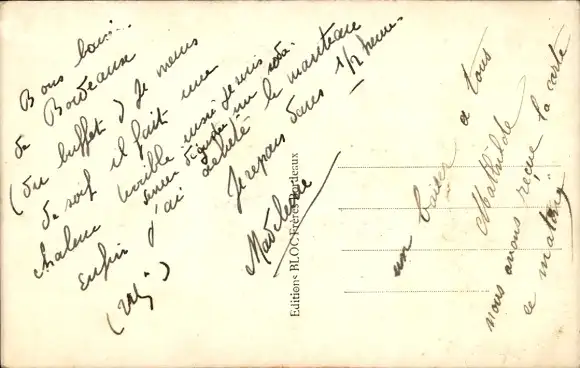 Bons baisers
de Bordeaux
(du buffet) Je meurs
de soif il fait une
chaleur horrible aussi je suis
enfin j'ai acheté le manteau
Je repars dans 1/2 heure.
Madeleine
Editions BLOC Frères Bordeaux
un baiser à tous
Mathilde
nous avons reçue la carte
ce matin